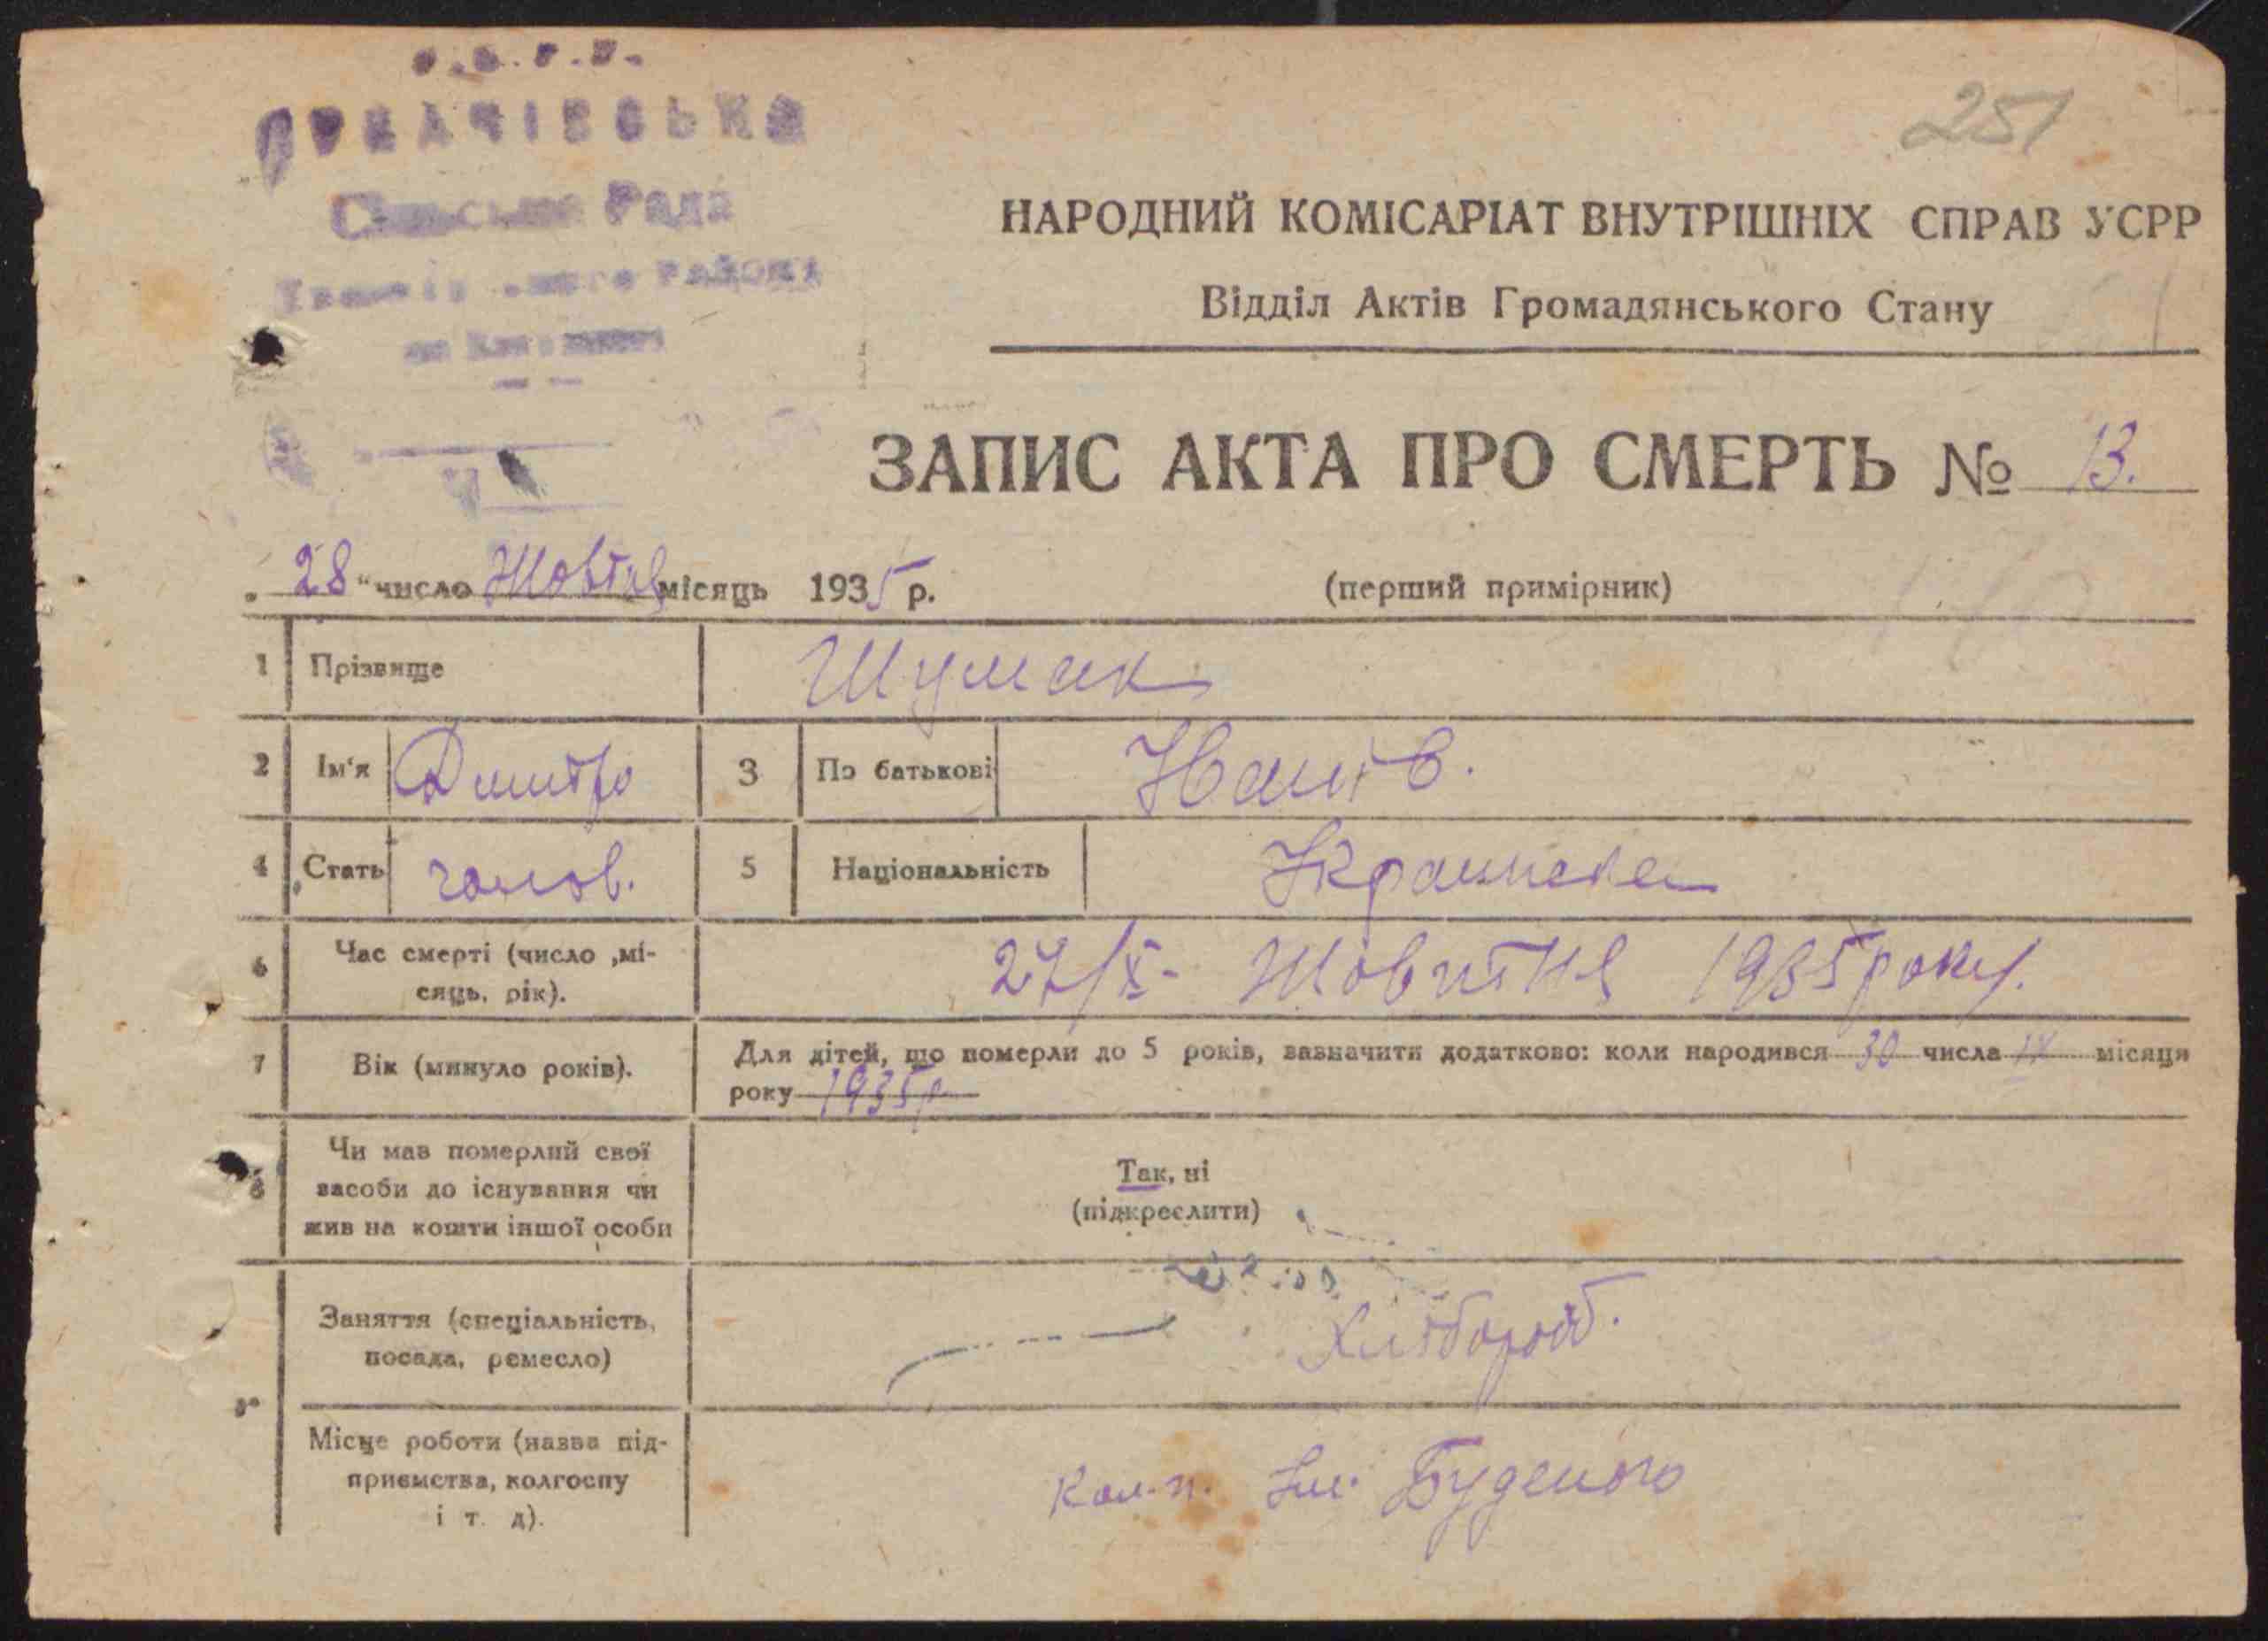 251
Сільська Рада
району
НАРОДНИЙ КОМІСАРІАТ ВНУТРІШНІХ СПРАВ УСРР
Відділ Актів Громадянського Стану
ЗАПИС АКТА ПРО СМЕРТЬ № 13.
28 "число Жовтня місяць 1935 р.
(перший примірник)
1 Прізвище Шумак
2 Ім'я Дмитро 3 По батькові Іванів.
4 Стать чолов. 5 Національність Українська
6 Час смерті (число ,мі-
сяць, рік).
27/X- Жовтня 1935 року.
7 Вік (минуло років).
Для дітей, що померли до 5 років, зазначити додатково: коли народився 30 числа IX місяця
року 1935р
8 Чи мав померлий свої
засоби до існування чи
жив на кошти іншої особи
Так, ні
(підкреслити)
Заняття (спеціальність,
посада, ремесло)
Хлібороб.
Місце роботи (назва під-
приємства, колгоспу
і т. д).
Кол-п. Ім. Буденого